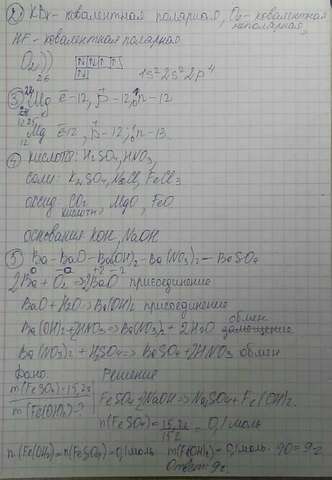 2) KBr - ковалентная полярная, O2 - ковалентная
неполярная,
HF - ковалентная полярная
O 2 6 1s² 2s² 2p⁴
3) 24 12 Mg ē-12, p-12, n-12
25 12 Mg ē 12, p-12, n-13.
4) кислота: H2SO4, HNO3,
соли: K2SO4, NaCl, FeCl3
оксид CO2, MgO, FeO
кислотн.
основания KOH, NaOH
5) Ba - BaO - Ba(OH)2 - Ba(NO3)2 - BaSO4
2Ba + O2 → 2BaO присоединение
BaO + H2O → Ba(OH)2 присоединение
обмен
Ba(OH)2 + 2HNO3 → Ba(NO3)2 + 2H2O замещение
Ba(NO3)2 + H2SO4 → BaSO4 + 2HNO3 обмен
Дано. Решение
m(FeSO4) = 15,2г
m(Fe(OH)2) - ?
FeSO4 + 2NaOH → Na2SO4 + Fe(OH)2.
n(FeSO4) = 15,2г / 152 = 0,1 моль
n(Fe(OH)2) = n(FeSO4) = 0,1 моль m(Fe(OH)2) = 0,1 моль · 90 = 9г.
Ответ: 9г.